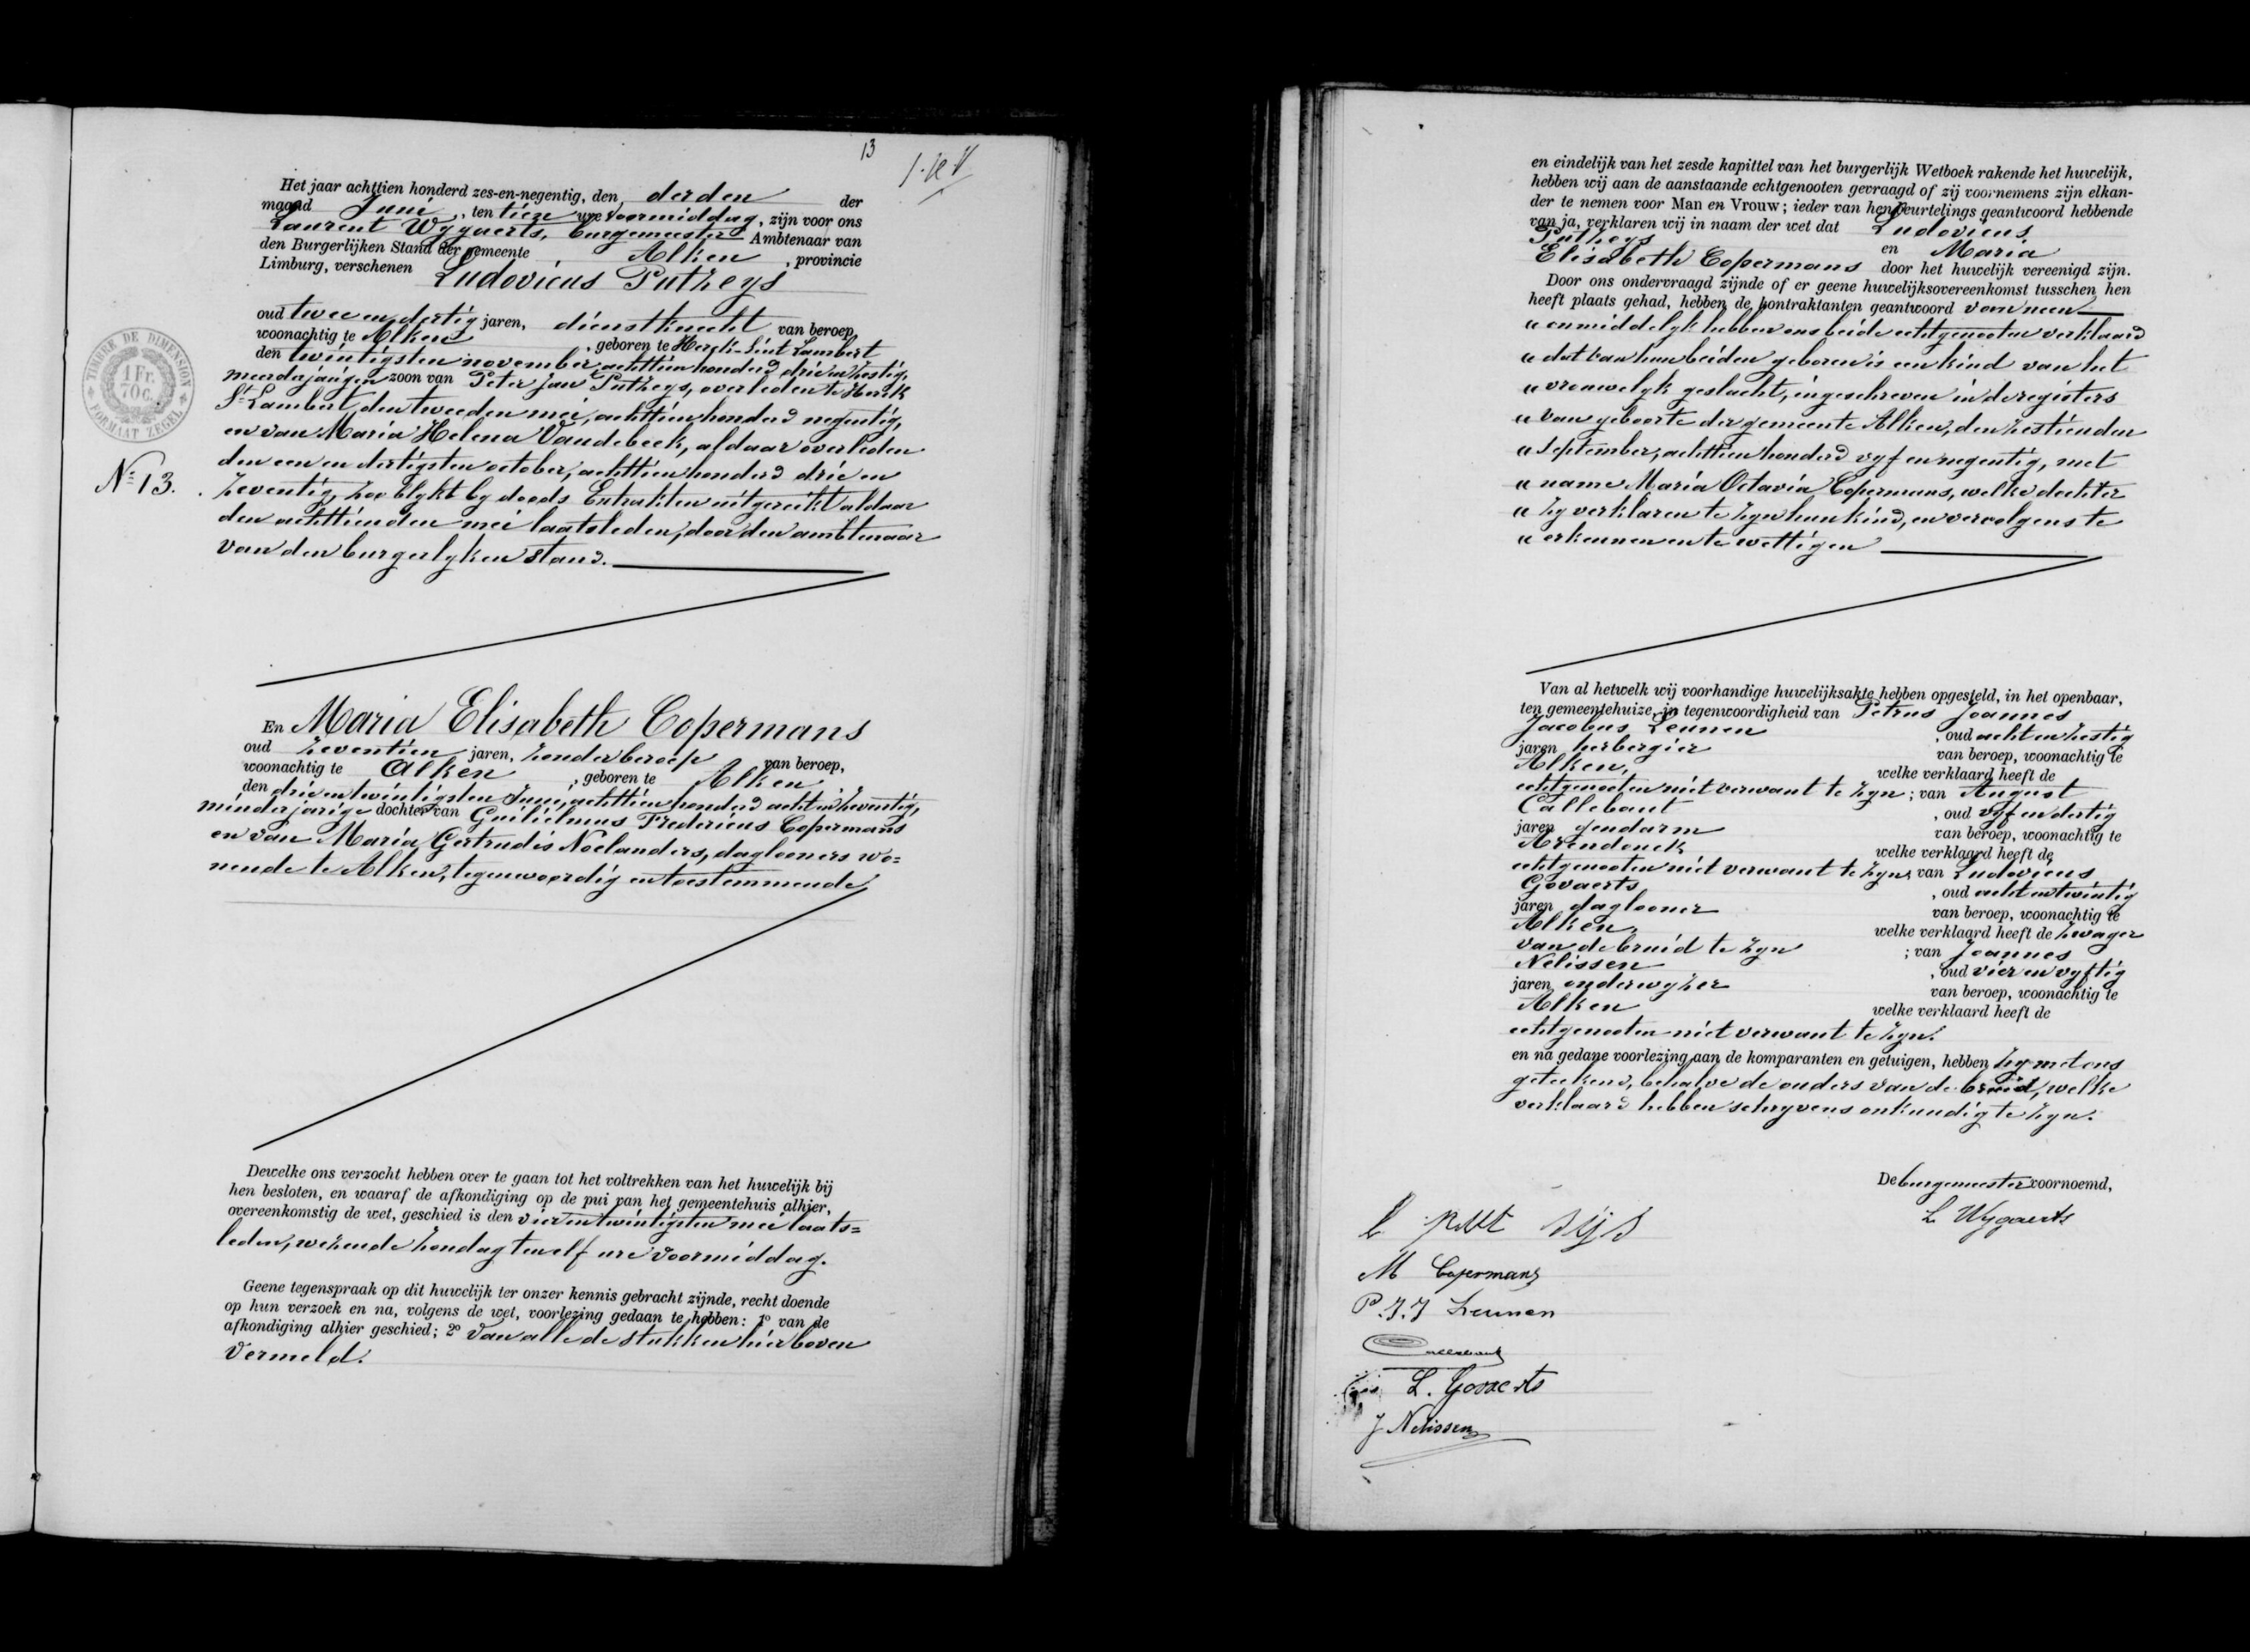 13
Het jaar achttien honderd zes-en-negentig, den derden der
maand Juni, ten tien ure voormiddag, zijn voor ons
Laurent Wygaerts, burgemeester Ambtenaar van
den Burgerlijken Stand der gemeente Alken, provincie
Limburg, verschenen Ludovicus Putzeys
oud twee en dertig jaren, dienstknecht van beroep,
woonachtig te Alken, geboren te Herck-Sint Lambert
den twintigsten november achttien honderd drie en zestig,
meerderjarigen zoon van Peter Jan Putzeys, overleden te Herck
St Lambert, den tweeden mei, achttien honderd negentig,
en van Maria Helena Vandebeek, aldaar overleden
den een en dertigsten october, achttien honderd drie en
zeventig, zoo blykt by doods Extrakten uitgereikt aldaar
den achttienden mei laatsleden, door den ambtenaar
van den burgerlyken stand.
TIMBRE DE DIMENSION
1 Fr.
70 c.
FORMAAT ZEGEL
No 13.
En Maria Elisabeth Copermans
oud zeventien jaren, zonder beroep van beroep,
woonachtig te Alken, geboren te Alken
den drie en twintigsten Juni, achttien honderd acht en zeventig,
minderjarige dochter van Guilielmus Fredericus Copermans
en van Maria Gertrudis Noelanders, daglooners wo=
nende te Alken, tegenwoordig en toestemmende
Dewelke ons verzocht hebben over te gaan tot het voltrekken van het huwelijk bij
hen besloten, en waaraf de afkondiging op de pui van het gemeentehuis alhier,
overeenkomstig de wet, geschied is den vier en twintigsten mei laats=
leden, wezende zondag ten elf ure voormiddag.
Geene tegenspraak op dit huwelijk ter onzer kennis gebracht zijnde, recht doende
op hun verzoek en na, volgens de wet, voorlezing gedaan te hebben: 1° van de
afkondiging alhier geschied; 2° van alle de stukken hierboven
vermeld.
en eindelijk van het zesde kapittel van het burgerlijk Wetboek rakende het huwelijk,
hebben wij aan de aanstaande echtgenooten gevraagd of zij voornemens zijn elkan-
der te nemen voor Man en Vrouw; ieder van hen beurtelings geantwoord hebbende
van ja, verklaren wij in naam der wet dat Ludovicus
Putzeys en Maria
Elisabeth Copermans door het huwelijk vereenigd zijn.
Door ons ondervraagd zijnde of er geene huwelijksovereenkomst tusschen hen
heeft plaats gehad, hebben de kontraktanten geantwoord van neen
" onmiddelyk hebben ons beide echtgenooten verklaard
" dat van hun beiden geboren is een kind van het
" vrouwelyk geslacht, ingeschreven in de registers
" van geboorte der gemeente Alken, den zestienden
" september, achttien honderd vyf en negentig, met
" name Maria Octavia Copermans, welke dochter
" zy verklaren te zyn hun kind, en vervolgens te
" erkennen en te wettigen
Van al hetwelk wij voorhandige huwelijksakte hebben opgesteld, in het openbaar,
ten gemeentehuize, in tegenwoordigheid van Petrus Joannes
Jacobus Leunen, oud acht en zestig
jaren herbergier van beroep, woonachtig te
Alken, welke verklaard heeft de
echtgenooten niet verwant te zyn; van August
Callebaut, oud vyf en dertig
jaren gendarm van beroep, woonachtig te
Arendonck welke verklaard heeft de
echtgenooten niet verwant te zyn, van Ludovicus
Govaerts, oud acht en twintig
jaren daglooner van beroep, woonachtig te
Alken, welke verklaard heeft de zwager
van de bruid te zyn; van Joannes
Nelissen, oud vier en vyftig
jaren onderwyzer van beroep, woonachtig te
Alken welke verklaard heeft de
echtgenooten niet verwant te zyn.
en na gedane voorlezing aan de komparanten en getuigen, hebben zy met ons
geteekend, behalve de ouders van de bruid, welke
verklaard hebben schryvens onkundig te zyn.
De burgemeester voornoemd,
L Wygaerts
M Copermans
P. J. J Leunen
Callebaut
L. Govaerts
J Nelissen